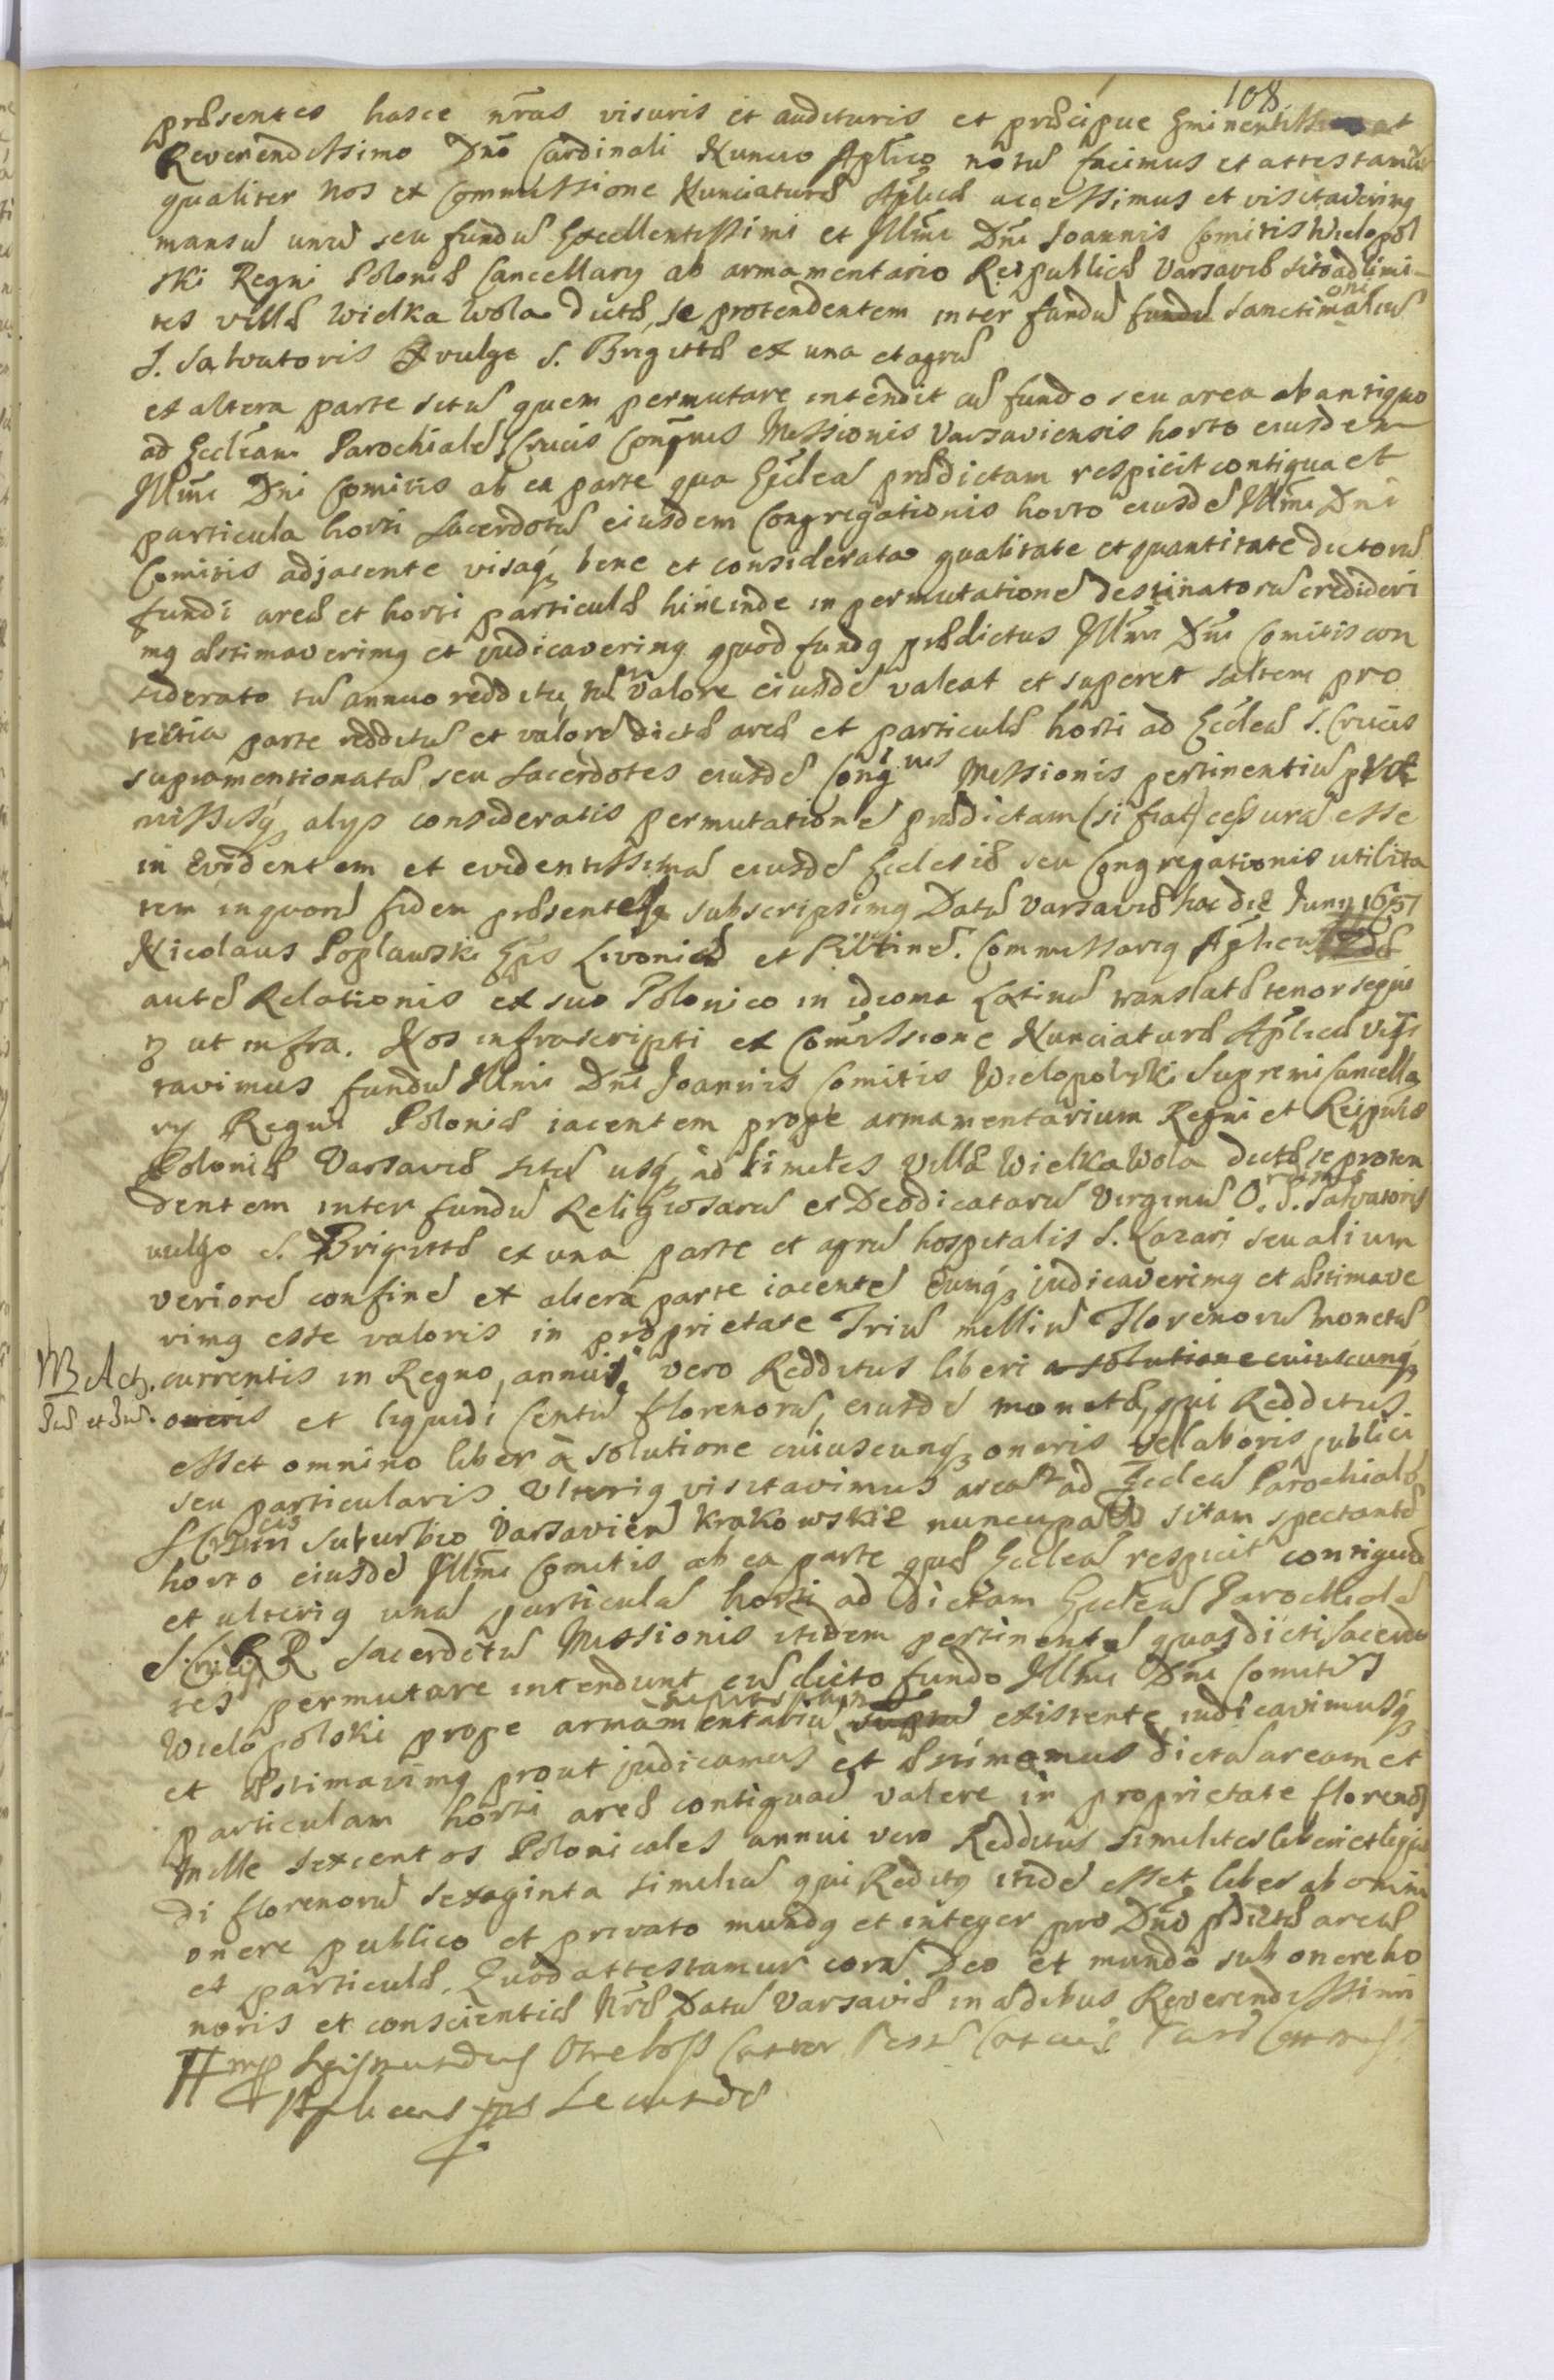 108
præsentes hasce nr̃as visuris et audituris et præcipue Eminentissimo et
Reverendissimo Dnõ Cardinali Nuncio Aplico notũ facimus et attestamur
qualiter nos ex Commissione Nunciaturæ Aplicæ accessimus et visitaverimq
mansũ unũ seu fundũ Excellentissimi et Illmi Dni Joannis Comitis Wielopol
ski Regni Poloniæ Cancellarij ab armamentario Reipublicæ Varsaviæ sito ad limi-
tes villæ Wielka Wola dictæ, se protendentem inter fundũ fundũ Sanctimonialiũ
S. Salvatoris vulgo S. Brigittæ ex una et agrũ
ex altera parte sitũ quem permutare intendit cũ fundo seu area ab antiquo
ad Eccliam Parochialẽ S Crucis Congnis Missionis Varsaviensis horto eiusdem
Illmi Dni Comitis ab ea parte qua Eccleã prædictam respicit contigua et
particula horti Sacerdotũ eiusdem Congregationis horto eiusdẽ Illmi Dni
Comitis adjacente visaq bene et considerata qualitate et quantitate dictorũ
fundi areæ et horti particulæ hincinde in permutationẽ destinatorũ credideri
mq æstimaverimq et judicaverimq quod fundq prædictus Illmi Dni Comitis con
siderato tũ annuo redditu, tũ valore eiusdẽ valeat et superet saltem pro
tertia parte redditũ et valorẽ dictæ areæ et particulæ horti ad Eccleã S. Crucis
supramentionatã seu Sacerdotes eiusdẽ Congnis Missionis pertinentiũ præ
missisq alijs consideratis permutationẽ prædictam (si fiat) cessurã esse
in Evidentem et evidentissimã eiusdẽ Ecclesiæ seu Congregationis utilita
tem in quorũ fidem præsentes subscripsimq Datũ Varsaviæ hac die Junij
Nicolaus Poplawski Epis Livoniæ et Piltinẽ. Commissariq Aplicus
autẽ Relationis ex suo Polonico in idioma Latinũ translatæ tenor sequi
ut infra. Nos infrascripti ex Commissione Nunciaturæ Aplicæ visi
tavimus fundũ Illmi Dni Joannis Comitis Wielopolski Supremi Cancella
rij Regni Poloniæ iacentem prope armamentarium Regni et Reipulcæ
Poloniæ Varsaviæ sitũ usq ad limites Villæ Wielka Wola dictæ se proten
dentem inter fundũ Religiosarũ et Deodicatarũ Virginũ O. S. Salvatoris
vulgo S. Brigittæ ex una parte et agrũ hospitalis S. Lazari seu alium
veriorẽ confinẽ ex altera parte iacentẽ eumq judicaverimq et æstimave
rimq esse valoris in proprietate Triũ milliũ Florenorũ monetæ
currentis in Regno, annui vero Redditus liberi a solutione cuiuscunq
oneris et liquidi Centũ florenorũ, eiusdẽ monetæ, qui Redditus
esset omnino liber à solutione cuiuscunq oneris vel laboris publici
seu particularis. Ulteriq visitavimus areã ad Eccleã Parochialẽ
S Crucis in suburbio Varsavien Krakowskie nuncupato sitam spectantẽ
horto eiusdẽ Illmi Comitis ab ea parte quæ Eccleã respicit contiguã
et ulteriq unã particulã horti ad dictam Eccleã Parochialẽ
S. Crucis RR Sacerdotũ Missionis itidem pertinentẽ quas dicti Sacerdo
tes permutare intendunt cũ dicto fundo Illmi Dni Comitis
Wielopolski prope armamentariũ existente, iudicavimusq
et æstimavimq prout judicamus et æstimamus dictã aream et
particulam horti areæ contiguã valere in proprietate florenos
Mille sexcentos Polonicales annui vero Redditus similiter liberi et liqui
di florenorũ sexaginta similiũ qui Reditq itidẽ esset liber ab omni
onere publico et privato mundq et integer pro Dnõ pdictæ areæ
et particulæ. Quod attestamur corã Deo et mundo sub onere ho
noris et conscientiæ Nræ Datũ Varsaviæ in ædibus Reverendissimi